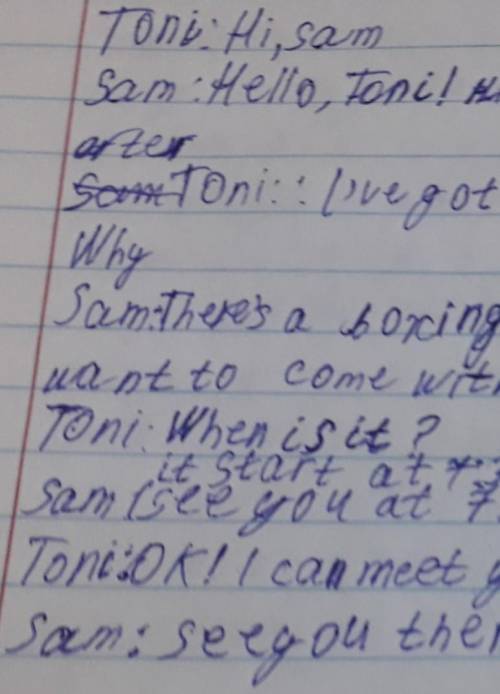 Toni: Hi, sam
Sam: Hello, Toni!
after
Sam Toni:: I've got
Why
Sam: There's a boxing
want to come with
Toni: When is it?
it start at
Sam I see you at 7
Toni: OK! I can meet
Sam: see you